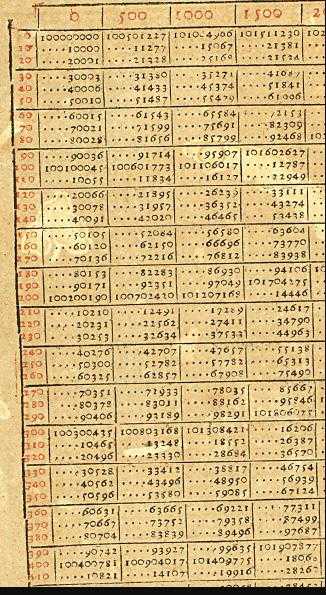 0 500 1000 1500 2
0 100000000 100501227 101004966 101511230 102
10 ····10000 ····11277 ····15067 ····21381
20 ····20001 ····21328 ····25168 ····21534
30 ····30003 ····31380 ····35271 ····41687
40 ····40006 ····41433 ····45374 ····51841
50 ····50010 ····51487 ····55479 ····61996
60 ····60015 ····61543 ····65584 ····72153
70 ····70021 ····71599 ····75691 ····82309
80 ····80028 ····81656 ····85799 ····92468
90 ····90036 ····91714 ····95907 101602627
100 100100045 100601773 101106017 ····12787
110 ····10055 ····11834 ····16127 ····22949
120 ····20066 ····21895 ····26239 ····33111
130 ····30078 ····31957 ····36352 ····43274
140 ····40091 ····42020 ····46465 ····53438
150 ····50105 ····52084 ····56580 ····63604
160 ····60120 ····62150 ····66696 ····73770
170 ····70136 ····72216 ····76812 ····83938
180 ····80153 ····82283 ····86930 ····94106
190 ····90171 ····92351 ····97049 101704275
200 100200190 100702420 101207168 ····14446
210 ····10210 ····12491 ····17289 ····24617
220 ····20231 ····22562 ····27411 ····34790
230 ····30253 ····32634 ····37533 ····44963
240 ····40276 ····42707 ····47657 ····55138
250 ····50300 ····52782 ····57782 ····65313
260 ····60325 ····62857 ····67908 ····75490
270 ····70351 ····72933 ····78035 ····85667
280 ····80378 ····83011 ····88162 ····95846
290 ····90406 ····93189 ····98291 101806025
300 100300435 100803168 101308421 ····16206
310 ····10465 ····13248 ····18552 ····26387
320 ····20496 ····23330 ····28684 ····36570
330 ····30528 ····33412 ····38817 ····46754
340 ····40562 ····43496 ····48950 ····56939
350 ····50596 ····53580 ····59085 ····67124
360 ····60631 ····63665 ····69221 ····77311
370 ····70667 ····73752 ····79358 ····87499
380 ····80704 ····83839 ····89496 ····97687
390 ····90742 ····93927 ····99635 101907877
400 100400781 100904017 101409775 ····18068
410 ····10821 ····14107 ····19916 ····28260